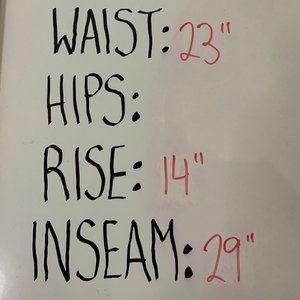 WAIST: 23"
HIPS:
RISE: 14"
INSEAM: 29"